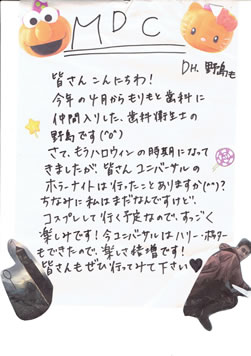 MDC
DH. 野島も
皆さんこんにちわ!
今年の4月からもりもと歯科に
仲間入りした、歯科衛生士の
野島です(^o^)
さて、もうハロウィンの時期になって
きましたが、皆さんユニバーサルの
ホラーナイトは行ったことありますか(^^)?
ちなみに私はまだなんですけど、
コスプレして行く予定なので、すっごく
楽しみです!今ユニバーサルはハリー・ポッター
もできたので、楽しさ倍増です!
皆さんもぜひ行ってみて下さい♥